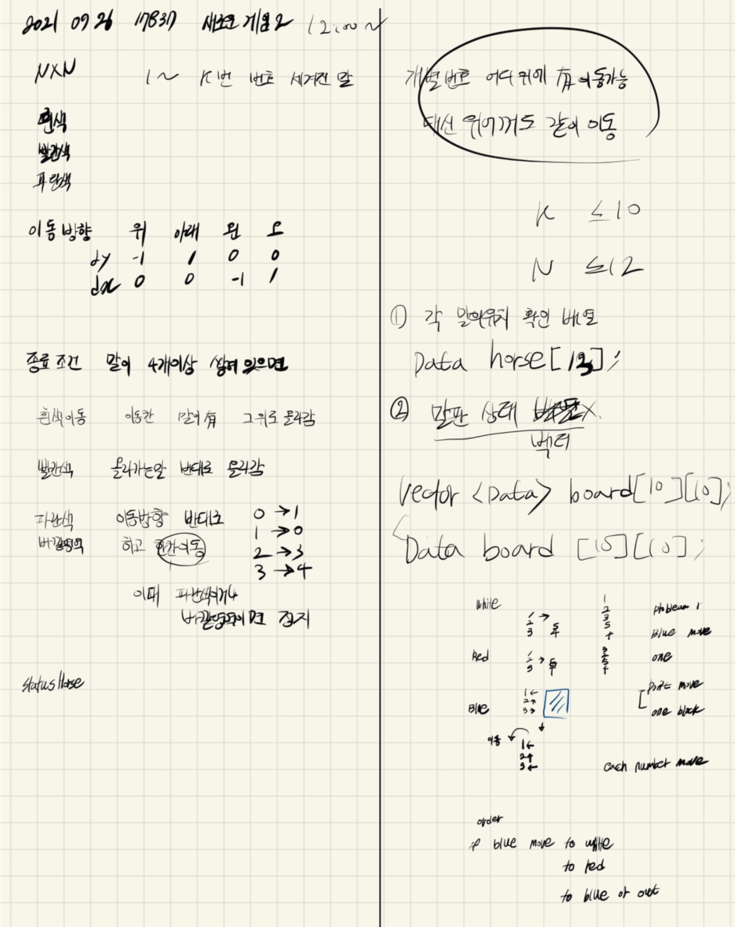 2021 09 26 17837 새로운 게임 2 12:00 ~
NXN 1 ~ K번 번호 새겨진 말
흰색
빨간색
파란색
이동방향 위 아래 왼 오
dy -1 1 0 0
dx 0 0 -1 1
종료 조건 말이 4개이상 쌓여 있으면
흰색이동 이동칸 말이 有 그위로 올라감
빨간색 올라가는말 반대로 올라감
파란색 이동방향 반대로 0 → 1
하고 한칸이동 1 → 0
2 → 3
3 → 4
이때 파란색이거나
바깥영역이면 정지
status Horse
개별번호 어디 위에 有 이동가능
대신 위에꺼도 같이 이동
K ≤10
N ≤12
① 각 말의위치 확인 배열
Data horse[13];
② 말판 상태
벡터
Vector <Data> board[10][10];
Data board [10][10];
white
1 → 5
2
3 4
problem 1
blue move
Red
one
Blue
1 ←
2 →
3 →
point move
one block
이동
1 ←
3 ←
each number move
order
if blue move to white
to red
to blue or out